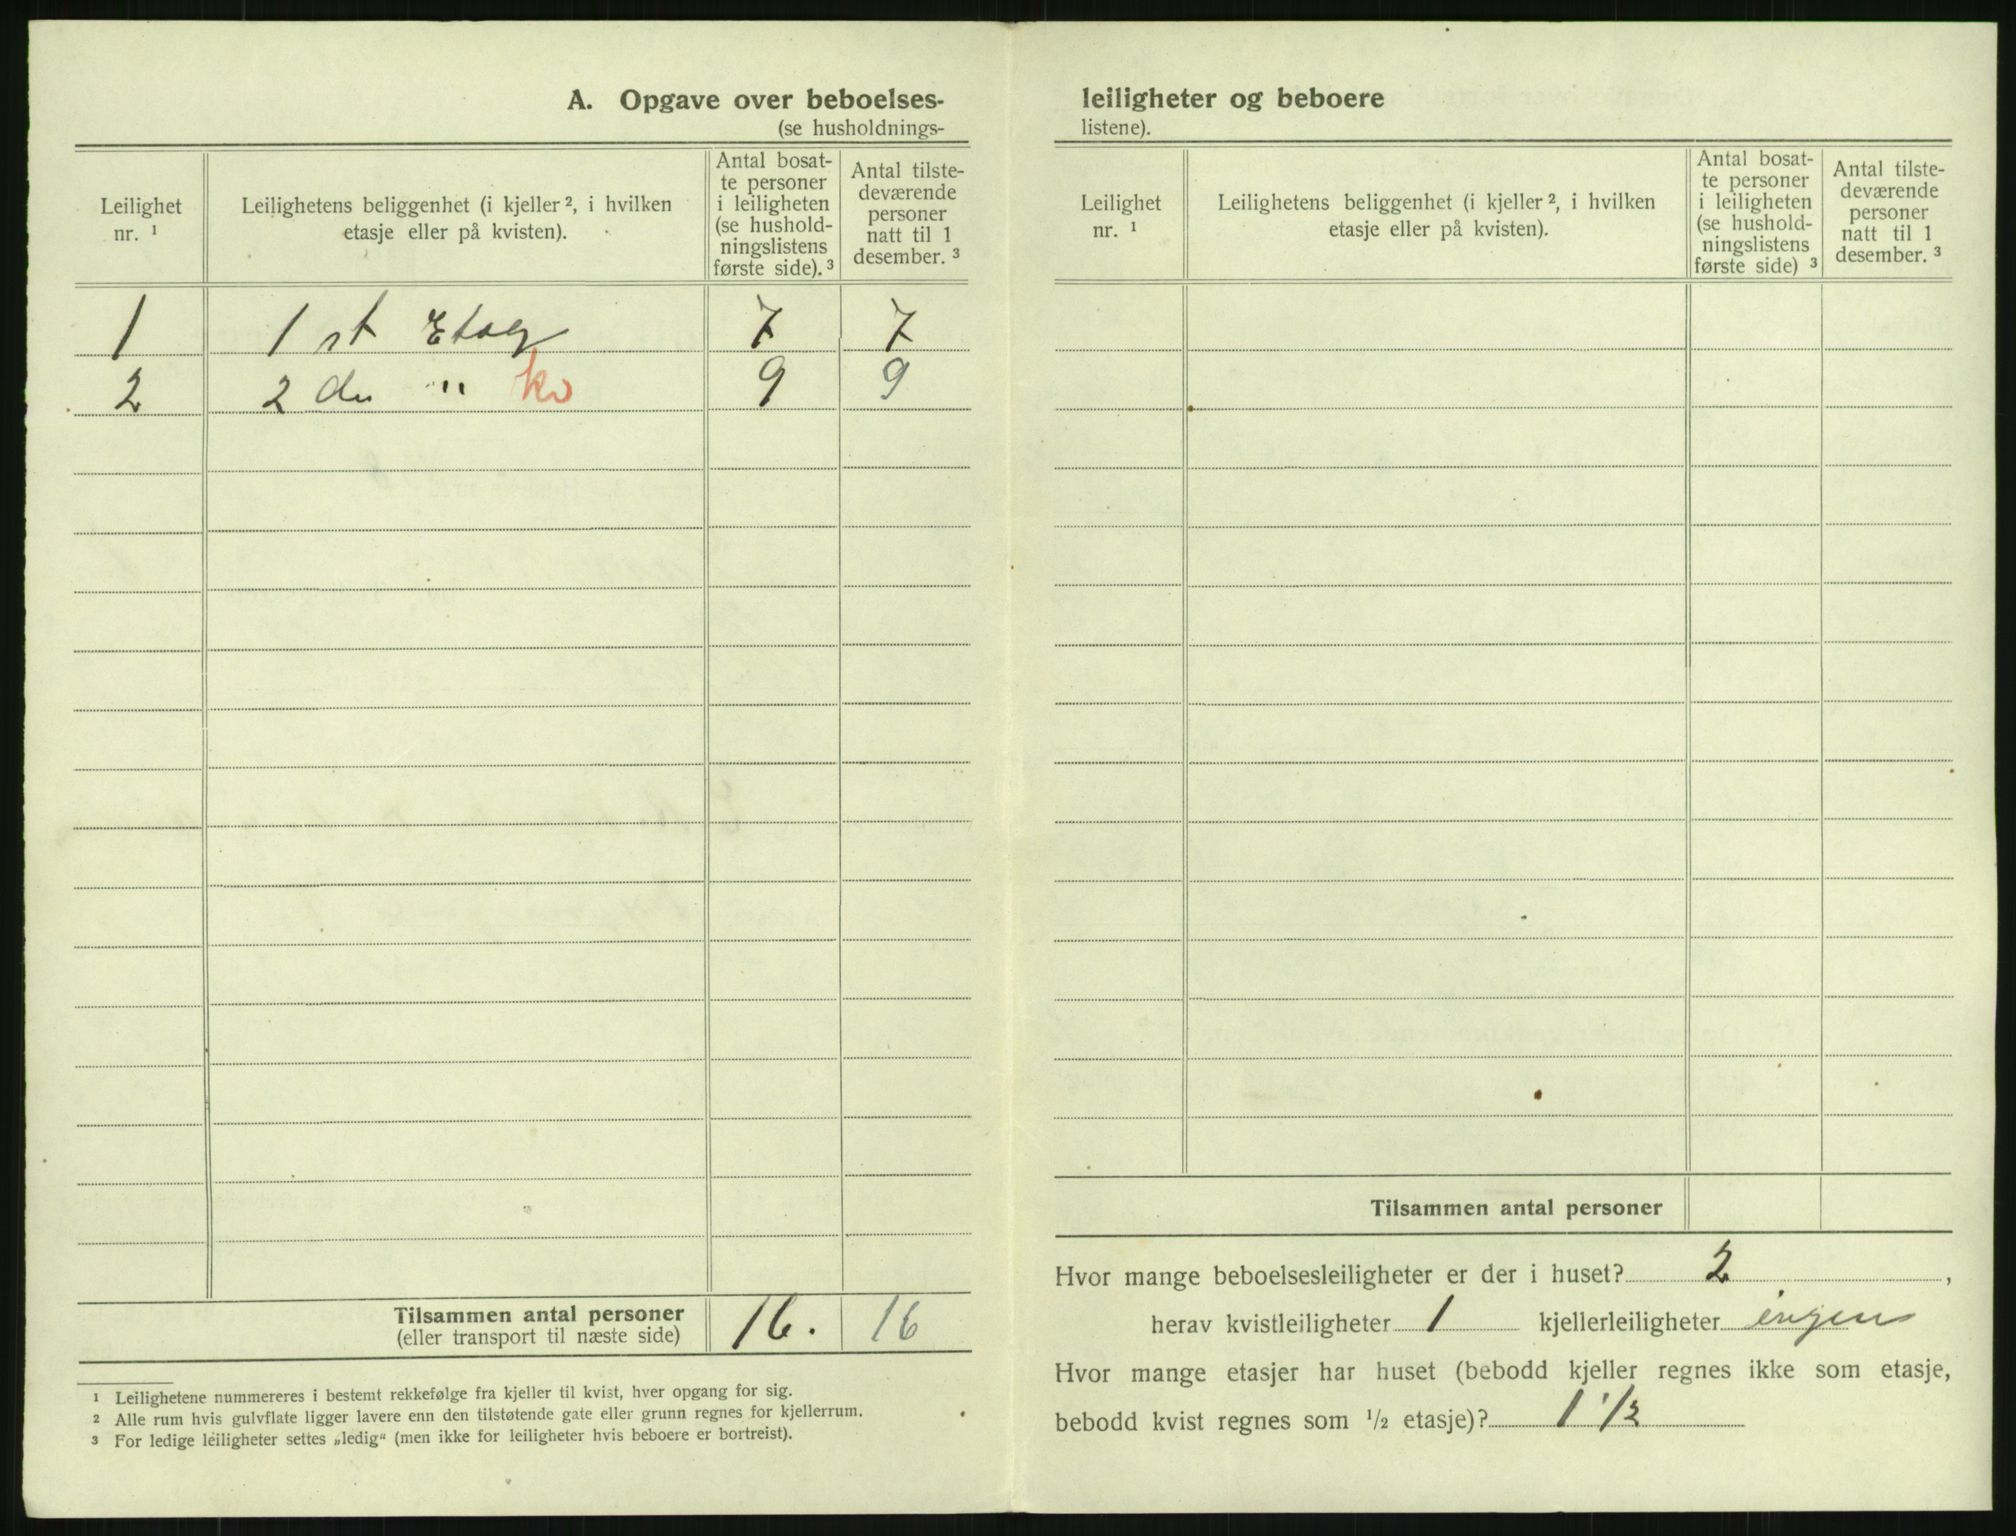 A. Opgave over beboelses-
(se husholdnings-
Leilighet
nr. ¹
Leilighetens beliggenhet (i kjeller ², i hvilken
etasje eller på kvisten).
Antal bosat-
te personer
i leiligheten
(se hushold-
ningslistens
første side). ³
Antal tilste-
deværende
personer
natt til 1
desember. ³
1 1 st Etag 7 7
2 2 den " kv 9 9
Tilsammen antal personer
(eller transport til næste side)
16. 16
¹ Leilighetene nummereres i bestemt rekkefølge fra kjeller til kvist, hver opgang for sig.
² Alle rum hvis gulvflate ligger lavere enn den tilstøtende gate eller grunn regnes for kjellerrum.
³ For ledige leiligheter settes „ledig“ (men ikke for leiligheter hvis beboere er bortreist).
leiligheter og beboere
listene).
Leilighet
nr. ¹
Leilighetens beliggenhet (i kjeller ², i hvilken
etasje eller på kvisten).
Antal bosat-
te personer
i leiligheten
(se hushold-
ningslistens
første side) ³
Antal tilste-
deværende
personer
natt til 1
desember. ³
Tilsammen antal personer
Hvor mange beboelsesleiligheter er der i huset? 2 ,
herav kvistleiligheter 1 kjellerleiligheter ingen
Hvor mange etasjer har huset (bebodd kjeller regnes ikke som etasje,
bebodd kvist regnes som ½ etasje)? 1 ½